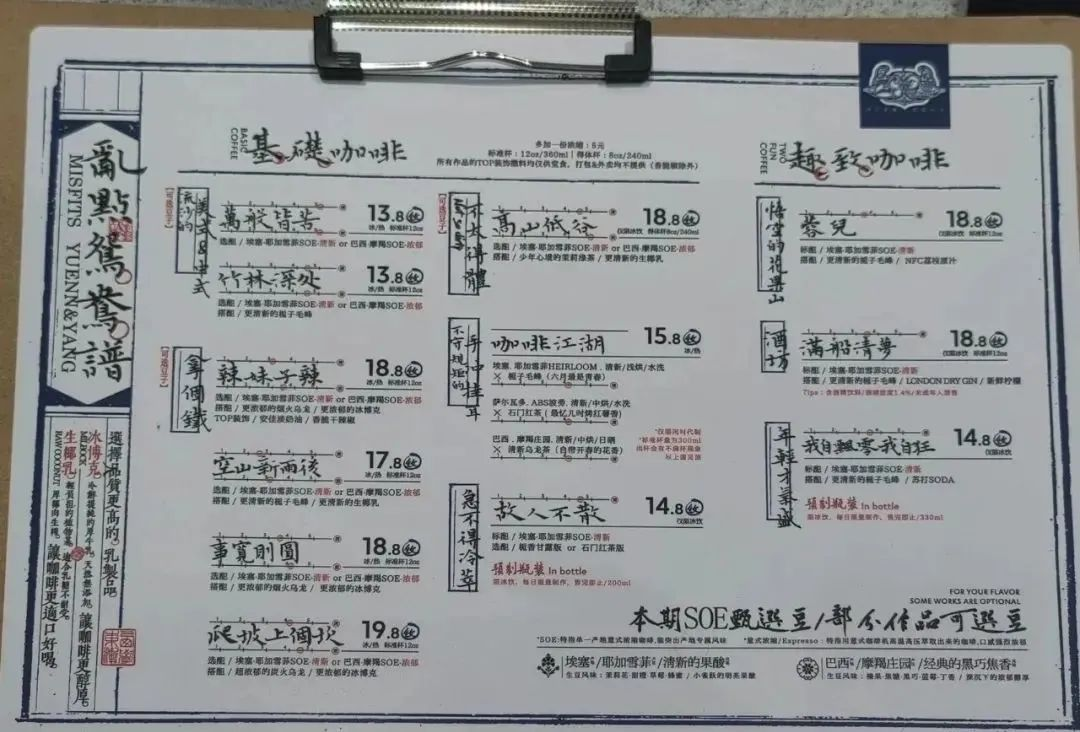 亂點鴛鴦譜
MISFITS YUENN&YANG
選擇品質更高的乳製品
冰博克
MILBOCK
冷鮮提純的厚牛乳 天然無添加 讓咖啡更醇厚
生椰乳
RAW COCONUT
厚椰肉生榨 讓咖啡更適口好喝
BASIC COFFEE
基礎咖啡
多加一份浓缩：5元
标准杯：12oz/360ml｜得体杯：8oz/240ml
所有作品的TOP装饰撒料均仅供堂食，打包&外卖均不提供（香脆椒除外）
【可选豆子】
美式&中式
萬般皆苦
13.8
冰/热 标准杯12oz
选配 / 埃塞·耶加雪菲SOE·清新 or 巴西·摩羯SOE·浓郁
竹林深处
13.8
冰/热 标准杯12oz
选配 / 埃塞·耶加雪菲SOE·清新 or 巴西·摩羯SOE·浓郁
搭配 / 更清新的栀子毛峰
【可选豆子】
拿個鐵
辣妹子辣
18.8
冰/热 标准杯12oz
选配 / 埃塞·耶加雪菲SOE·清新 or 巴西·摩羯SOE·浓郁
搭配 / 更浓郁的烟火乌龙 / 更浓郁的冰博克
TOP装饰 / 安佳淡奶油 / 香脆干辣椒
空山新雨後
17.8
冰/热 标准杯12oz
选配 / 埃塞·耶加雪菲SOE·清新 or 巴西·摩羯SOE·浓郁
搭配 / 更清新的栀子毛峰 / 更清新的生椰乳
事寬則圓
18.8
冰/热 标准杯12oz
选配 / 埃塞·耶加雪菲SOE·清新 or 巴西·摩羯SOE·浓郁
搭配 / 更浓郁的烟火乌龙 / 更浓郁的冰博克
爬坡上個坎
19.8
冰/热 标准杯12oz
选配 / 埃塞·耶加雪菲SOE·清新 or 巴西·摩羯SOE·浓郁
搭配 / 超浓郁的炭火乌龙 / 更浓郁的冰博克
【可选豆子】
不妨得體
高山低谷
18.8
仅限冰饮 得体杯8oz/240ml
选配 / 埃塞·耶加雪菲SOE·清新 or 巴西·摩羯SOE·浓郁
搭配 / 少年心境的茉莉绿茶 / 更清新的生椰乳
不守规矩的
手中挂耳
咖啡江湖
15.8
冰/热
埃塞．耶加雪菲HEIRLOOM．清新/浅烘/水洗
× 栀子毛峰（六月最是青春）
萨尔瓦多．ABS波旁．清新/中烘/水洗
× 石门红茶（最忆儿时烤红薯香）
巴西．摩羯庄园．清新/中烘/日晒
× 清新乌龙茶（自带开春的花香）
*仅限闲时代制
*标准杯量为300ml
出杯会有不满杯现象
以上请见谅
急不得冷萃
故人不散
14.8
仅限冰饮
标配 / 埃塞·耶加雪菲SOE·清新
选配 / 栀香甘露版 or 石门红茶版
預制瓶裝 In bottle
限冰饮，每日限量制作，售完即止/200ml
TWO FUN COFFEE
趣致咖啡
悟空的花果山
蓉兒
18.8
仅限冰饮 标准杯12oz
标配 / 埃塞·耶加雪菲SOE·清新
搭配 / 更清新的栀子毛峰 / NFC荔枝原汁
酒坊
滿船清夢
18.8
仅限冰饮 标准杯12oz
标配 / 埃塞·耶加雪菲SOE·清新
搭配 / 更清新的栀子毛峰 / LONDON DRY GIN / 新鲜柠檬
Tips：含酒精饮料/酒精浓度1.4%/未成年人禁售
年輕才氣盛
我自飄零我自狂
14.8
仅限冰饮
标配 / 埃塞·耶加雪菲SOE·清新
搭配 / 更清新的栀子毛峰 / 苏打SODA
預制瓶裝 In bottle
限冰饮，每日限量制作，售完即止/330ml
FOR YOUR FLAVOR
SOME WORKS ARE OPTIONAL
本期SOE甄選豆/部分作品可選豆
*SOE:特指单一产地意式浓缩咖啡,强突出产地专属风味 *意式浓缩/Espresso：特指用意式咖啡机高温高压萃取出来的咖啡,口感强烈浓郁
埃塞/耶加雪菲/清新的果酸
生豆风味：茉莉花·甜橙·草莓·蜂蜜 / 小雀跃的明亮果酸
巴西/摩羯庄园/经典的黑巧焦香
生豆风味：榛果·焦糖·黑巧·蓝莓·丁香 / 深沉下的浓郁醇厚